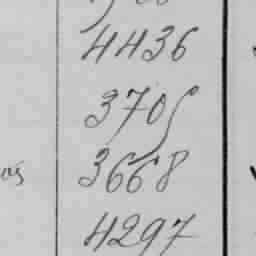 4436
3705
as 3668
4297